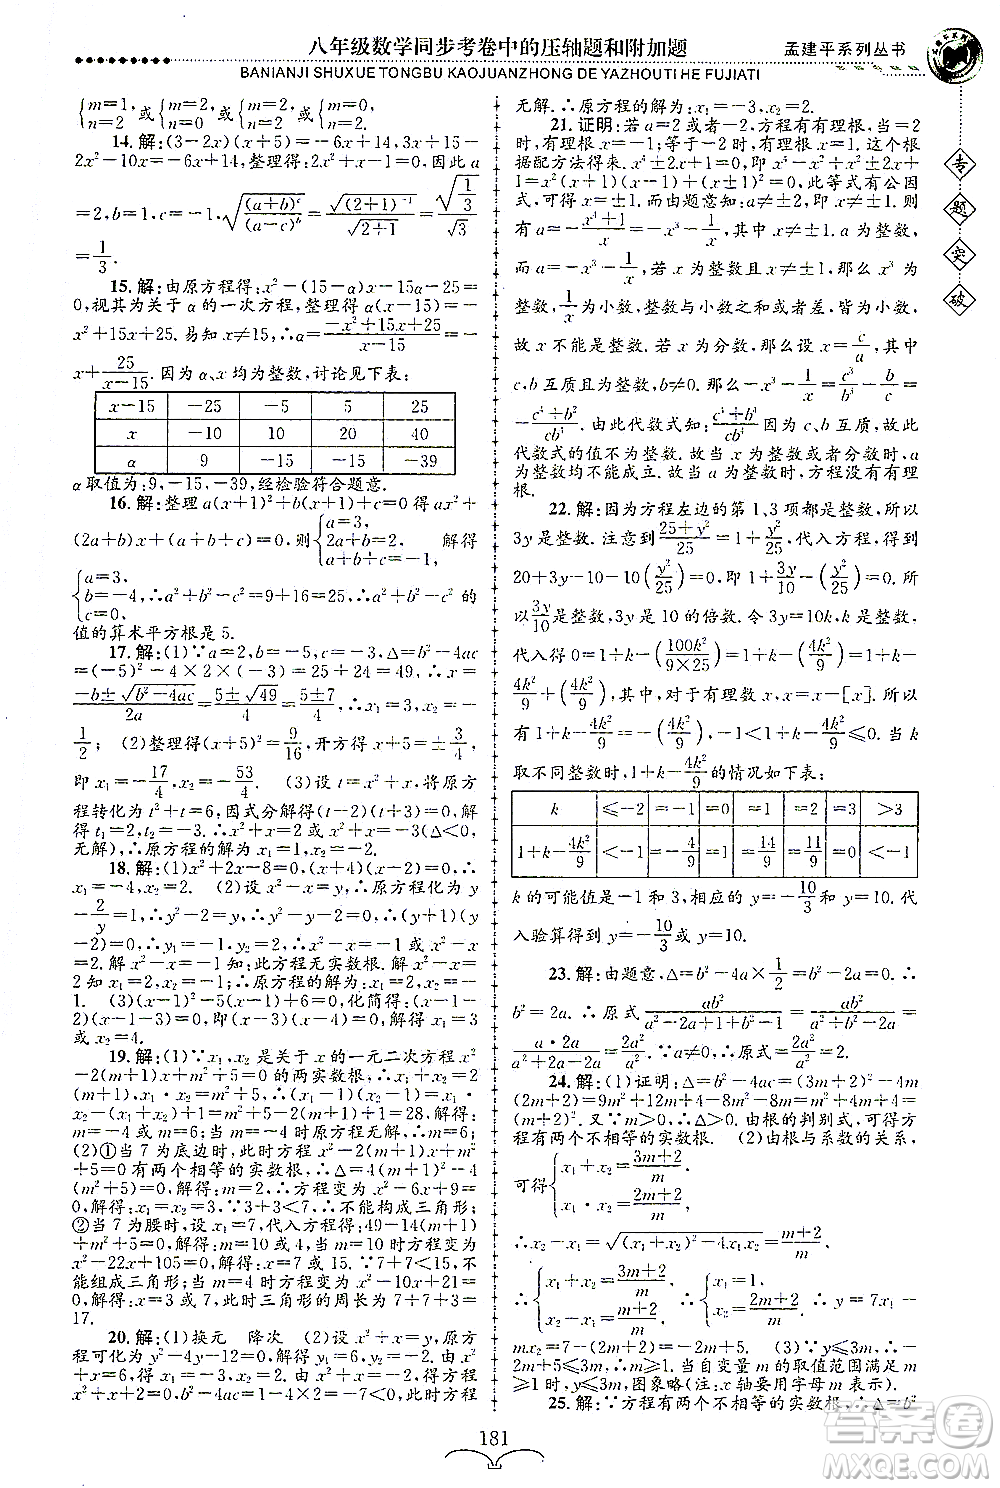 八年级数学同步考卷中的压轴题和附加题
孟建平系列丛书
BANIANJI SHUXUE TONGBU KAOJUANZHONG DE YAZHOUTI HE FUJIATI
专题突破
{m=1, n=2 或 {m=2, n=0 或 {m=2, n=2.
14. 解：(3－2x)(x＋5)＝－6x＋14，3x＋15－
2x²－10x＝－6x＋14，整理得：2x²＋x－1＝0. 因此 a
＝2，b＝1，c＝－1. √((a＋b)^c/(a－c)^b)＝√((2＋1)^(－1))/√(2＋1)＝√(1/3)/√3
＝1/3.
15. 解：由原方程得：x²－(15－α)x－15α－25＝0，
视其为关于 α 的一次方程，整理得 α(x－15)＝－
x²＋15x＋25. 易知 x≠15，∴α＝(－x²＋15x＋25)/(x－15)＝－
x＋25/(x－15). 因为 α、x 均为整数，讨论见下表：
x－15 －25 －5 5 25
x －10 10 20 40
α 9 －15 －15 －39
α 取值为：9，－15，－39，经检验符合题意.
16. 解：整理 a(x＋1)²＋b(x＋1)＋c＝0 得 ax²＋
(2a＋b)x＋(a＋b＋c)＝0，则 {a＝3, 2a＋b＝2, a＋b＋c＝－1. 解得
{a＝3, b＝－4, c＝0. ∴a²＋b²－c²＝9＋16＝25，∴a²＋b²－c² 的
值的算术平方根是 5.
17. 解：(1)∵a＝2，b＝－5，c＝－3，∴Δ＝b²－4ac
＝(－5)²－4×2×(－3)＝25＋24＝49，∴x＝
(－b±√(b²－4ac))/2a＝(5±√49)/4＝(5±7)/4，∴x₁＝3，x₂＝－
1/2； (2)整理得(x＋5)²＝9/16，开方得 x＋5＝±3/4，
即 x₁＝－17/4，x₂＝－53/4. (3)设 t＝x²＋x，将原方
程转化为 t²＋t＝6，因式分解得(t－2)(t＋3)＝0，解
得 t₁＝2，t₂＝－3. ∴x²＋x＝2 或 x²＋x＝－3(Δ＜0，
无解)，∴原方程的解为 x₁＝1，x₂＝－2.
18. 解：(1)x²＋2x－8＝0，(x＋4)(x－2)＝0，∴x₁
＝－4，x₂＝2. (2)设 x²－x＝y，则原方程化为 y
－2/y＝1，∴y²－2＝y，∴y²－y－2＝0，∴(y＋1)(y
－2)＝0，∴y₁＝－1，y₂＝2，∴x²－x＝－1 或 x²－x＝
2. 解 x²－x＝－1 知：此方程无实数根. 解 x²－x＝
2 知 x₁＝2，x₂＝－1；∴原方程的解是 x₁＝2，x₂＝－
1. (3)(x－1)²－5(x－1)＋6＝0，化简得：(x－1
－2)(x－1－3)＝0，即(x－3)(x－4)＝0，解得：x₁＝
3，x₂＝4.
19. 解：(1)∵x₁，x₂ 是关于 x 的一元二次方程 x²
－2(m＋1)x＋m²＋5＝0 的两实数根，∴x₁＋x₂＝
2(m＋1)，x₁·x₂＝m²＋5，∴(x₁－1)(x₂－1)＝x₁·
x₂－(x₁＋x₂)＋1＝m²＋5－2(m＋1)＋1＝28，解得：
m＝－4 或 m＝6；当 m＝－4 时原方程无解，∴m＝6；
(2)①当 7 为底边时，此时方程 x²－2(m＋1)x＋m²
＋5＝0 有两个相等的实数根，∴Δ＝4(m＋1)²－4
(m²＋5)＝0，解得：m＝2，∴方程变为 x²－6x＋9＝0，
解得：x₁＝x₂＝3，∵3＋3＜7，∴不能构成三角形；
②当 7 为腰时，设 x₁＝7，代入方程得：49－14(m＋1)
＋m²＋5＝0，解得：m＝10 或 4，当 m＝10 时方程变为
x²－22x＋105＝0，解得：x＝7 或 15，∵7＋7＜15，不
能组成三角形；当 m＝4 时方程变为 x²－10x＋21＝
0，解得：x＝3 或 7，此时三角形的周长为 7＋7＋3＝
17.
20. 解：(1)换元 降次 (2)设 x²＋x＝y，原方
程可化为 y²－4y－12＝0，解得 y₁＝6，y₂＝－2. 由
x²＋x＝6，得 x₁＝－3，x₂＝2. 由 x²＋x＝－2，得方程
x²＋x＋2＝0，b²－4ac＝1－4×2＝－7＜0，此时方程
无解. ∴原方程的解为：x₁＝－3，x₂＝2.
21. 证明：若 a＝2 或者－2，方程有有理根，当＝2
时，有理根 x＝－1；等于－2 时，有理根 x＝1. 这个根
根据配方法得来. x⁵－ax³－x²＋a＝0，即 x⁵－x²＝
a(x³－1)，可得 x≠±1，所以，此等式有公因
式，可得 x≠±1，而由题意知：a≠±2，那么 a＝
而 x≠0，x≠±1. a 为整数，
而 ＝x³＋1/x，若 x 为整数且 x≠±1，那么 x³ 为
整数，1/x 为小数，整数与小数之和或者差，皆为小数，
故 x 不能是整数. 若 x 为分数，那么设 x＝c/b，
c，b 互质且为整数，b≠0，那么－x³－1/x＝－c³/b³－b/c＝
－(c⁴＋b⁴)/cb³. 由此代数式知：c，b 互质，故此
代数式的值不为整数. 故当 x 为分数，与题意 a
为整数均不能成立. 故当 a 为整数时，方程没有有理
根.
22. 解：因为方程左边的第 1、3 项都是整数，所以
3y 是整数. 注意到 (25＋y²)/25＝1＋y²/25，代入方程，得到
20＋3y＝10＋y＋[y²/25]，即 1＋3y/10＝
所以 3y/10 是整数，3y 是 10 的倍数. 令 3y＝10k，k 是整数，
代入得 0＝1＋k－[100k²/(9×25)]＝1＋k－[4k²/9]＝1＋k－
4k²/9＋{4k²/9}，其中，对于有理数 x，x＝x－[x]. 所以
有 0＝1＋k－4k²/9＝－{4k²/9}，－1＜1＋k－4k²/9≤0. 当 k
取不同整数时，1＋k－4k²/9 的情况如下表：
k ≤－2 ＝－1 ＝0 ＝1 ＝2 ＝3 ＞3
1＋k－4k²/9 ＜－1 ＝－4/9 ＝1 ＝14/9 ＝11/9 ＝0 ＜－1
k 的可能值是－1 和 3，相应的 y＝－10/3 和 y＝10. 代
入验算得 y＝－10/3 或 y＝10.
23. 解：由题意，Δ＝b²－4a×1/2＝b²－2a＝0. ∴
b²＝2a. ∴原式＝ab²/(a²－4a＋4＋b²－4)＝ab²/(a²＋b²－4a)＝
a·2a/(a²＋2a－4a)＝2a²/(a²－2a). ∵a≠0，∴原式＝
24. 解：(1)证明：Δ＝b²－4ac＝(3m＋2)²－4m
(2m＋2)＝9m²＋12m＋4－8m²－8m＝m²＋4m＋4＝
(m＋2)². 又∵m＞0，∴Δ＞0，由根的判别式，可得
方程有两个不相等的实数根. (2)由根与系数的关系，
可得 {x₁＋x₂＝(3m＋2)/m, x₁·x₂＝(2m＋2)/m.
∴x₂－x₁＝√((x₁＋x₂)²－4x₁x₂)＝(m＋2)/m.
∴{x₁＋x₂＝(3m＋2)/m, x₂－x₁＝(m＋2)/m. ∴{x₁＝1, x₂＝(2m＋2)/m. ∴y＝7x₁－
mx₂＝7－(2m＋2)＝－2m＋5. (3)∵y≤3m，∴
－2m＋5≤3m，∴m≥1. 当自变量 m 的取值范围满足
m≥1 时，y≤3m，图象略(注：x 轴要用字母 m 表示).
25. 解：∵方程有两个不相等的实数根，∴Δ＝b²
181
答案圈
MXQE.COM